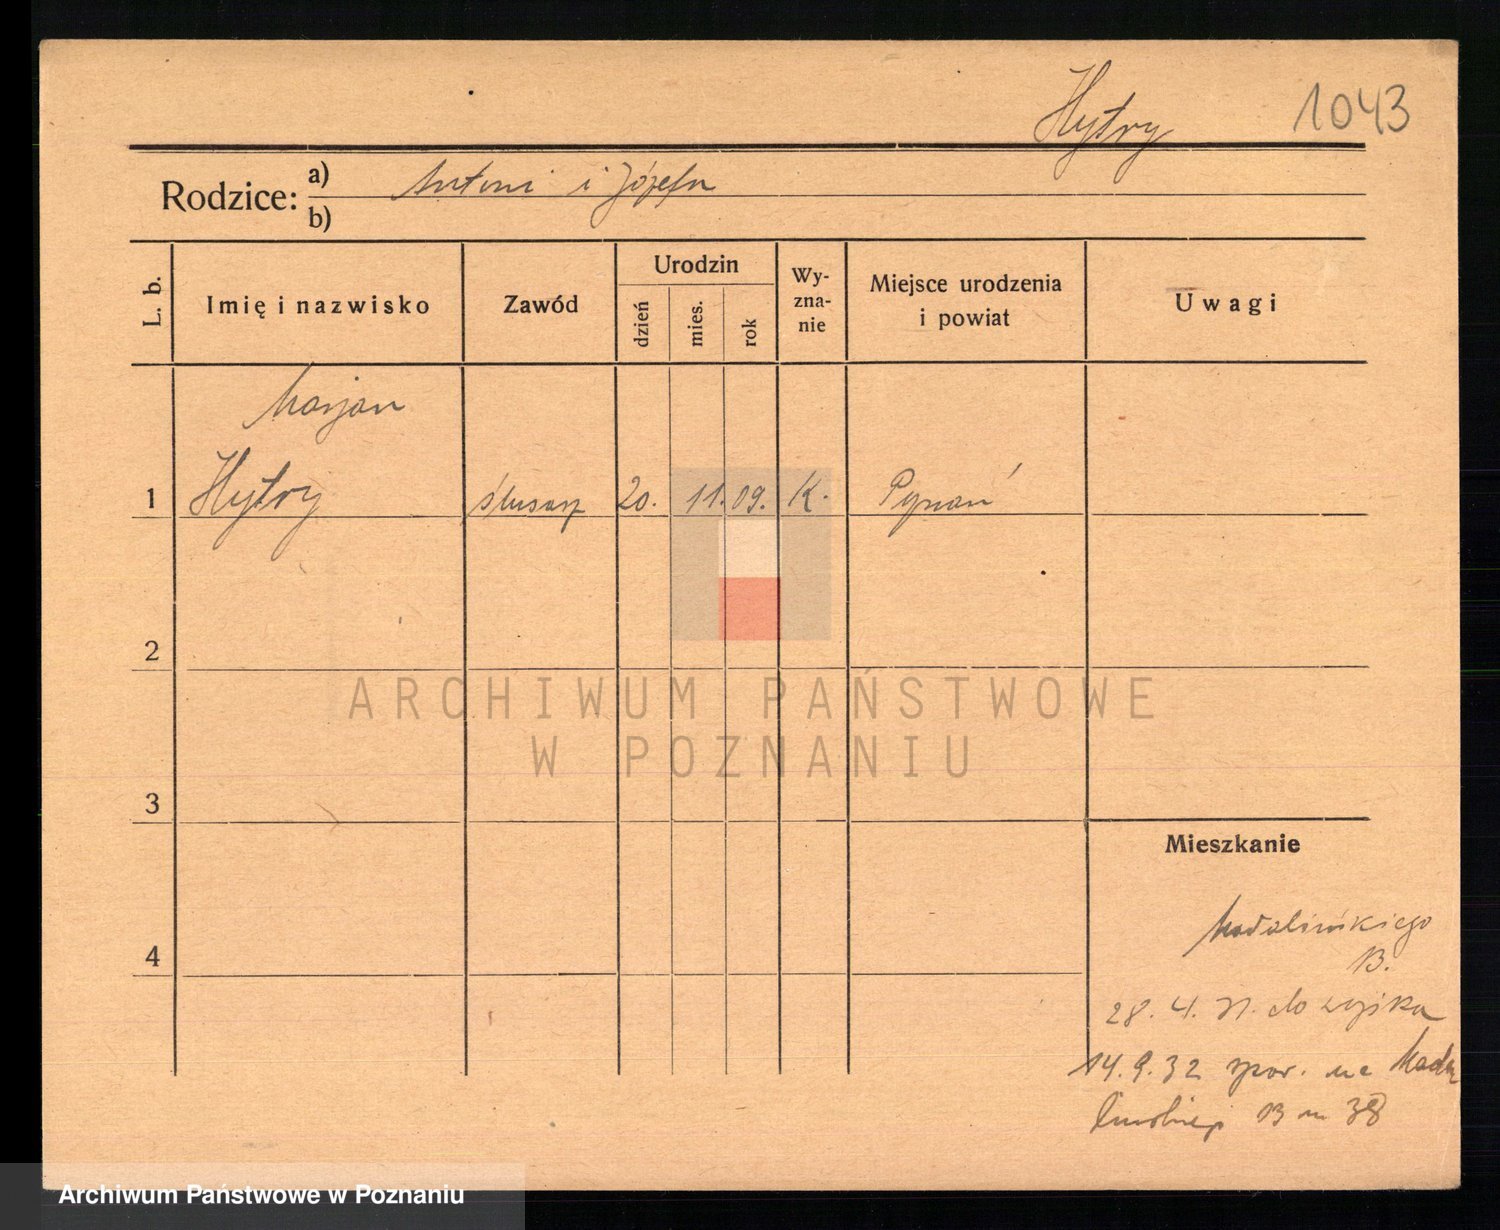 Hytry 1043
Rodzice: a) Antoni i Józefa
b)
L. b. Imię i nazwisko Zawód Urodzin dzień mies. rok Wy-zna-nie Miejsce urodzenia i powiat Uwagi
Marjan
1 Hytry ślusarz 20. 11. 09. K. Poznań
2
ARCHIWUM PAŃSTWOWE
W POZNANIU
3
Mieszkanie
4
Madalińskiego
13.
28. 4. 31. do wojska
14. 9. 32 na Mada
lińskiego 13 m 38
Archiwum Państwowe w Poznaniu